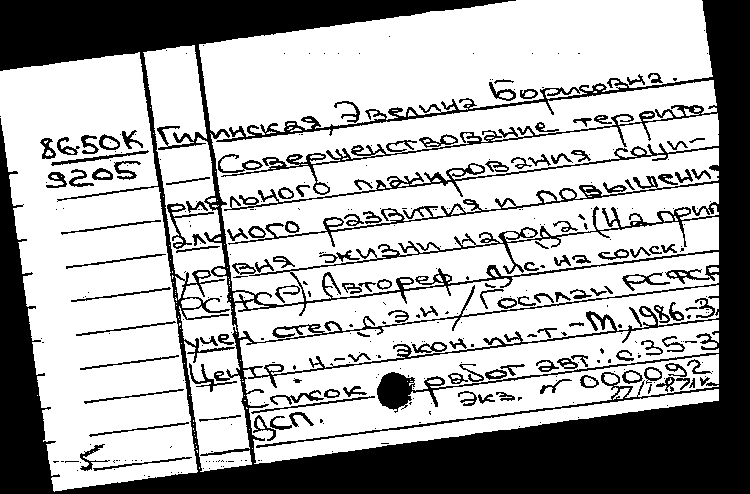 86.50К
9205
Гилинская, Эвелина Борисовна.
Совершенствование террито-
риального планирования соци-
ального развития и повышения
уровня жизни народа: (На прим
РСФСР): Автореф. дис. на соиск.
учен. степ. д.э.н. / Госплан РСФСР
Центр. н.-и. экон. ин-т. - М., 1986. - 3
Список работ авт.: с. 35-3
Экз. № 000092
ДСП.
5